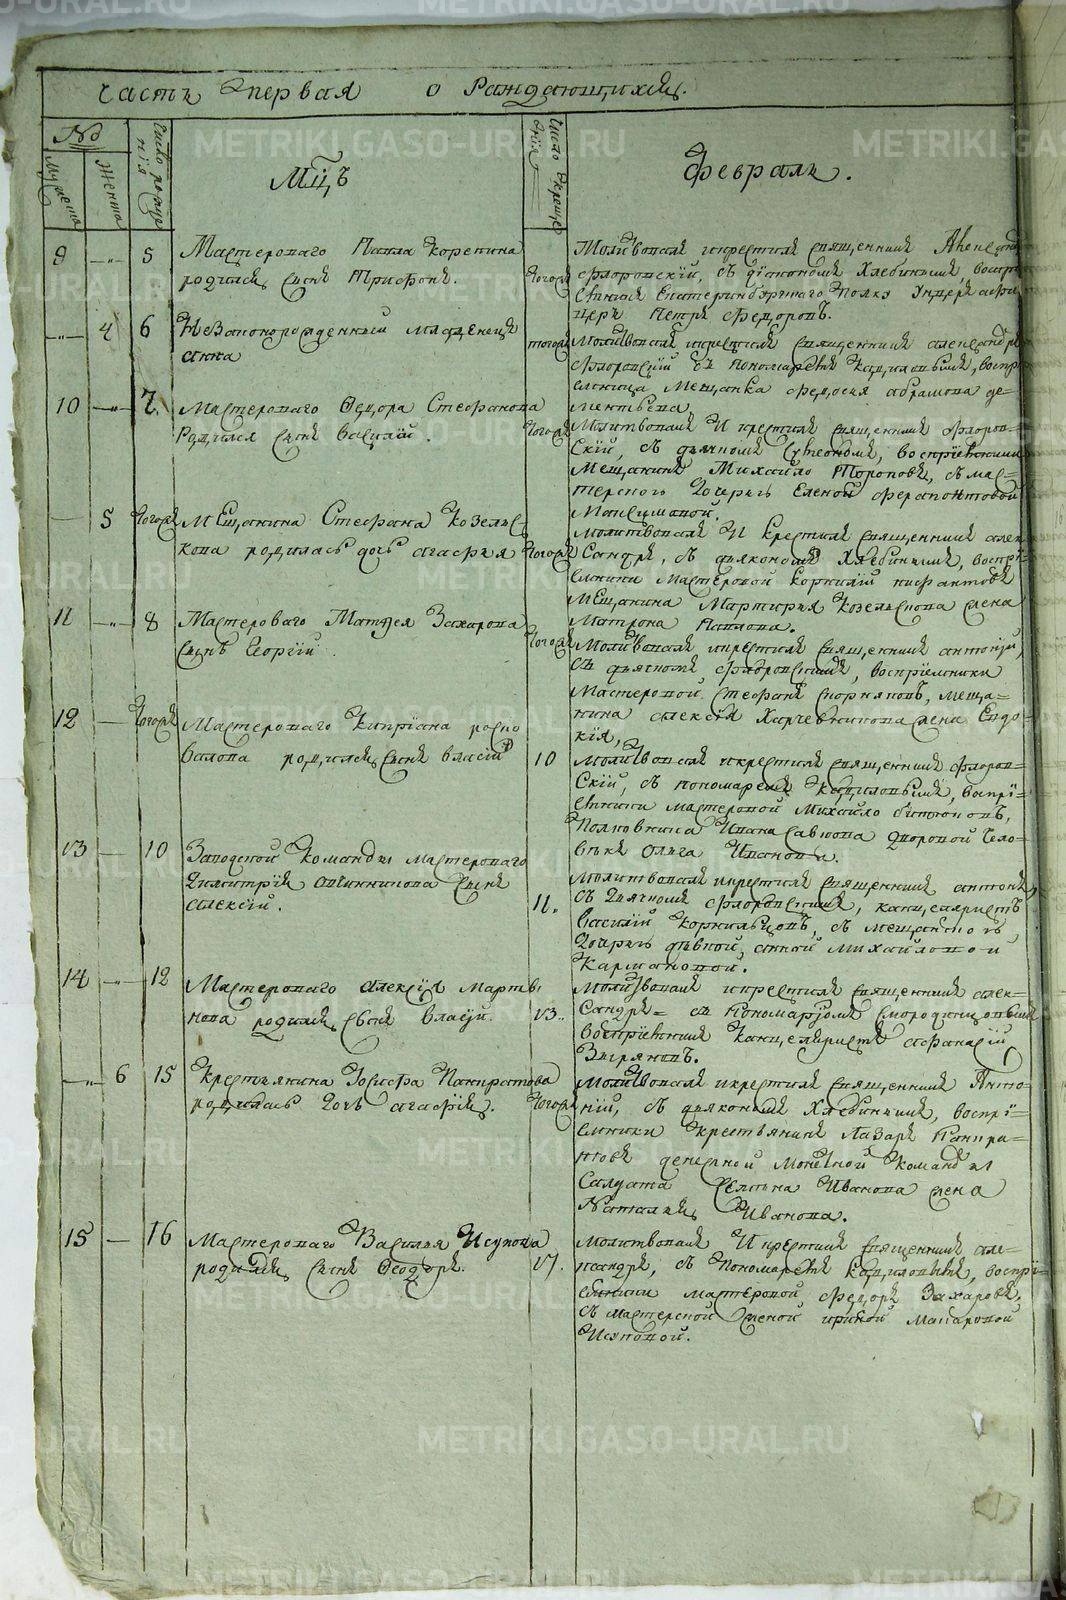 Часть первая о Раждающихся.
№
Мужеска
Женска
Число рожденія
Мцъ
Число крещенія
Февраль.
9 —„— 5 Мастероваго Павла Корепина
родился сынъ Трифонъ.
тогожъ
Молитвовалъ икрестилъ священникъ Александръ
Флоровскій, съ діакономъ Хлебинымъ, воспрі
емникъ Екатеринбургскаго Полку Ундеръ афи
церъ Петръ Федоровъ.
—„— 4 6 Незаконорожденный младенецъ
анна
тогожъ
Молитвовалъ икрестилъ священникъ александръ
Флоровскій съ пономаремъ Кадиловымъ, воспрі
емница Мещанка Федосия абрамова де=
ментьева
10 —„— 7. Мастероваго Федора Стефанова
Родился сынъ василій.
тогожъ
Молитвовалъ И крестилъ священникъ Флоров=
скій, съ дьячкомъ Сумеономъ, воспріемники
Мещанинъ Михайло Тороповъ, съ мас=
терского дочерью Еленой ферапонтовой
Максимовой.
— 5 тогожъ Мещанина Стефана Козельс=
кова родилась дочь агафия
тогожъ
молитвовалъ И Крестилъ священникъ алек
сандръ, съ дьякономъ Хлебинымъ, воспрі
емники Мастеровой Корнилій нифантовъ
Мещанина Мартирия Козельскова жена
Матрона Павлова.
11 —„— 8 Мастероваго Матфея Захарова
сынъ Георгій
тогожъ
Молитвовалъ икрестилъ священникъ антоній,
съ дьячкомъ флоровскимъ, воспріемники
Мастеровой Стефанъ Скорняковъ, меща=
нина алексія Харчевникова жена Евдо
кія,
12 — тогожъ Мастероваго Кипріана роспо
валова родился сынъ власій
10
Молитвовалъ икрестилъ священникъ флоров=
скій, съ пономаремъ Кадиловымъ, воспрі=
емники мастеровой Михайло
Полковника Ивана Савкова дворовой чело=
векъ Ольга Иванова.
13 — 10 Заводской Команды мастероваго
Димитрія Овчинникова сынъ
алексій.
11.
молитвовалъ икрестилъ священникъ антоній,
съ дьячкомъ флоровскимъ, канцеляристъ
василій Корнильцовъ, съ мещанского
дочерью девкой, анной михайловой
Кармановой.
14 —„— 12 Мастероваго Алексія Марты
нова родился сынъ власій.
13.
Молитвовалъ икрестилъ священникъ алек=
сандръ= съ Пономаремъ Смородинцовымъ
воспріемникъ Канцеляристъ афанасій
Зыряновъ.
—„— 6 15 Крестьянина Іосифа Панкратова
родилась дочь агафія.
тогожъ
Молитвовалъ икрестилъ священникъ Анто=
ній, съ дьякономъ Хлебинымъ, воспрі=
емники крестьянинъ Лазарь Панкра=
товъ денежной монетной Команды
салдата Иванова жена
Наталия Иванова.
15 — 16 Мастероваго Василья Исупова
родился сынъ Феодоръ.
17.
Молитвовалъ И крестилъ священникъ але=
ксандръ, съ Пономаремъ Кадиловымъ, воспрі=
емники мастеровой федоръ Захаровъ,
съ мастерской женой ириной Макаровой
Исуповой.